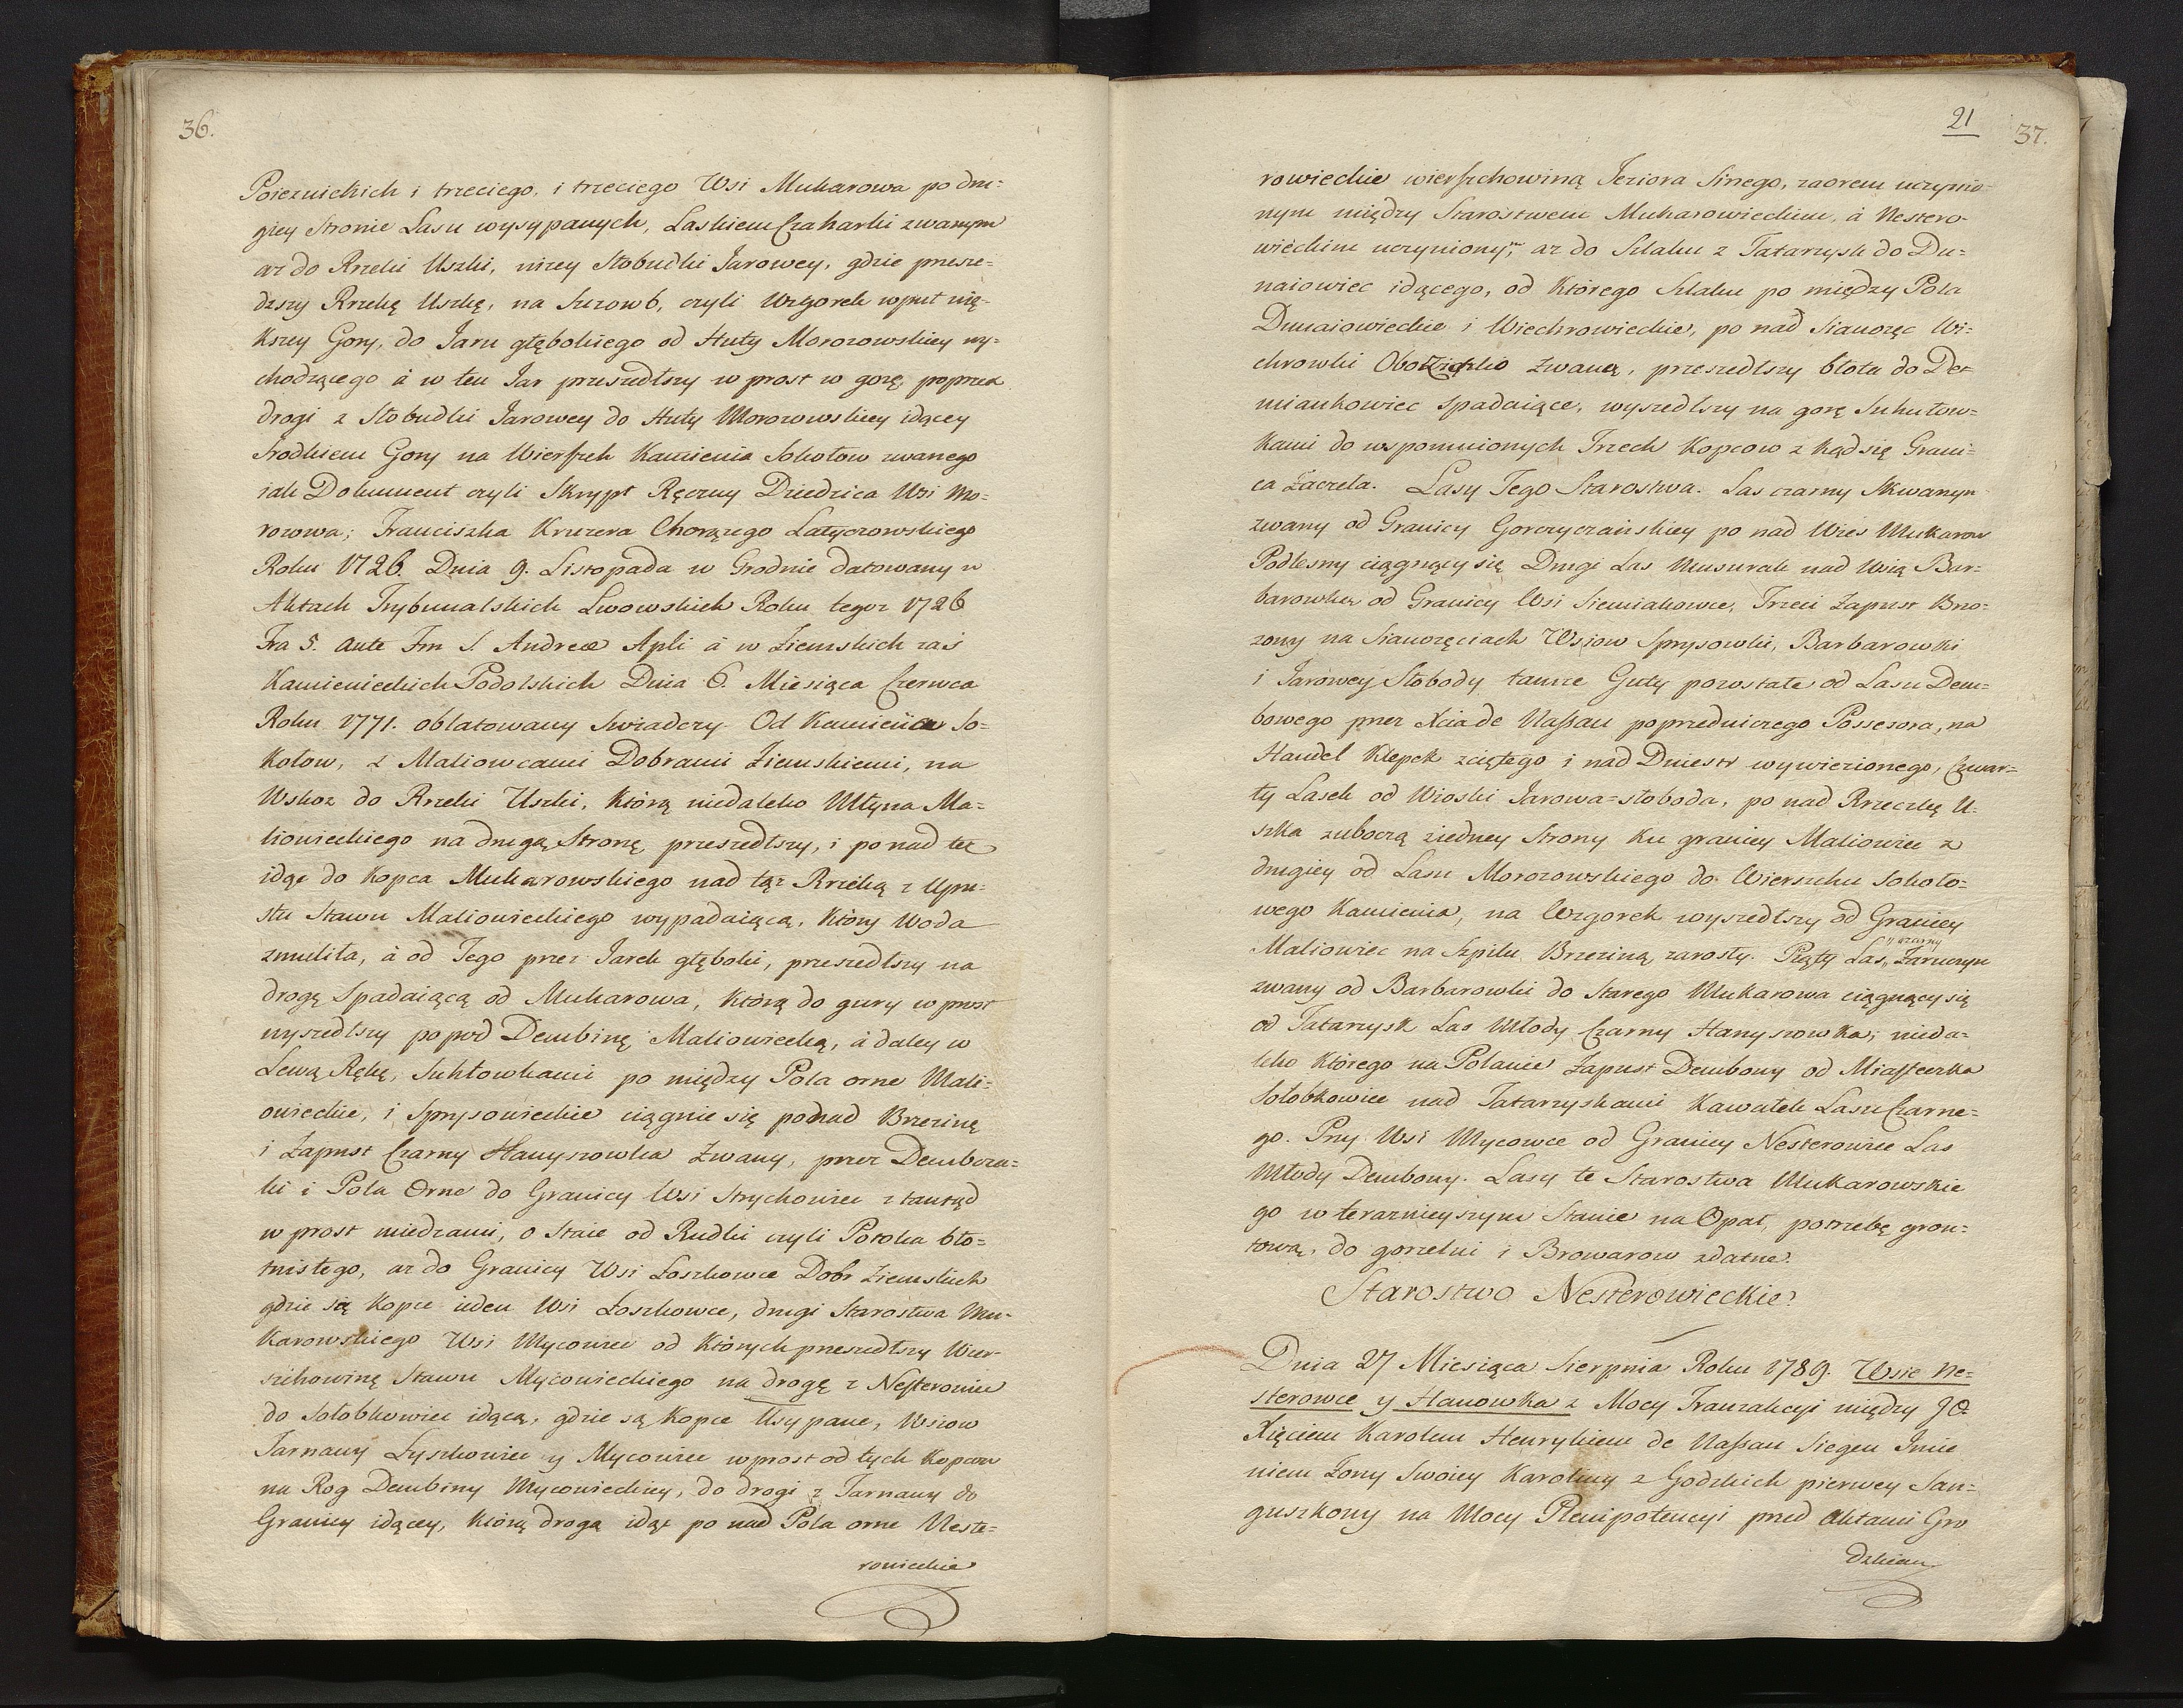 36.
Poiezuickich i trzeciego, i trzeciego Wsi Mukarowa po dru=
giey Stronie Lasu wysypanych, Laskiem Czaharki zwanym
az do Rzeki Uszki, nizey Słobudki Jarowey, gdzie przesze=
dszy Rzekę Uszkę, na Szrowb, czyli Wzgorek wprut wię-
kszey Gory, do Jaru głębokiego od Huty Morozowskiey wy=
chodzącego à w ten Jar przeszedłszy w prost w gorę, poprzek
drogi z Słobudki Jarowey do Huty Morozowskiey idącey
Srodkiem Gory na Wierszch Kamienia Sokołow zwanego
iak Dokument czyli Skrypt Ręczny Dziedzica Wsi Mo=
rozowa; Franciszka Kruzera Chorązego Latyczowskiego
Roku 1726. Dnia 9. Listopada w Grodnie datowany w
Aktach Trybunalskich Lwowskich Roku tegoz 1726
Fra 5. ante Fm S. Andreæ Apli à w Ziemskich zaś
Kamienieckich Podolskich Dnia 6. Miesiąca Czerwca
Roku 1771. oblatowany Swiadczy Od Kamienia So=
kołow, z Maliowcami Dobrami Ziemskiemi, na
Wskoz do Rzeki Uszki, Którą niedaleko Młyna Ma=
liowieckiego na drugą Stronę przeszedłszy, i po nad tez
idąc do Kopca Mukarowskiego nad tąz Rzeką z Upu=
stu Stawu Maliowieckiego wypadaiącą, Który Woda
zmuliła, à od Tego przez Jarek głęboki, przeszedłszy na
drogę Spadaiącą od Mukarowa, Którą do gury w prost
wyszedłszy popod Dembinę Maliowiecką, à daley w
Lewą Rękę, Suhłowkami po między Pola orne Mali=
owieckie, i Sprysowieckie ciągnie się ponad Brzezinę
i Zapust Czarny Hanyszowka Zwany, przez Dembcza=
ki i Pola Orne do Granicy Wsi Strychowiec z tamtąd
w prost miedzami, o Staie od Rudki czyli Potoka bło=
tnistego, az do Granicy Wsi Łoszkowce Dobr Ziemskich
gdzie są Kopce ieden Wsi Łoszkowce, drugi Starostwa Mu-
karowskiego Wsi Mycowiec od Których przeszedłszy Wier-
szchowinę Stawu Mycowieckiego na drogę z Nesterowiec
do Sołobkowiec idącą, gdzie są Kopce Usypane, Wsiow
Tarnawy Łyszkowiec y Mycowiec wprost od tych Kopcow
na Rog Dembiny Mycowieckiey, do drogi z Tarnawy do
Granicy idącey, Którą drogą idąc po nad Pola orne Neste=
rowieckie
21
37.
rowieckie wierszchowiną Jeziora Sinego, zaorem uczynio=
nym między Starostwem Mukarowieckim, à Nestero-
wieckim uczynionym, az do Szlaku z Tatarzysk do Du=
naiowiec idącego, od Którego Szlaku po między Pola
Dunaiowieckie i Wiechrowieckie, po nad Sianożęc Wi=
chrowki Zwaną, przeszedłszy błota do De=
miankowiec Spadaiące, wyszedłszy na gorę Suhułow=
kami do wspomnionych Trzech Kopcow z kąd się Grani=
ca Zaczeła. Lasy Tego Starostwa. Las czarny Skwanyn
zwany od Granicy Gorczyczańskiey po nad Wies Mukarow
Podlesny ciągnący się Drugi Las Musurak nad Wsią Bar=
barowką od Granicy Wsi Siemiakowce, Trzeci Zapust Brzo=
zony na Sianożęciach Wsiow Sprysowki, Barbarowki
i Jarowey Słobody tamze Guty pozostałe od Lasu Dem=
bowego przez Xcia de Nassau poprzedniczego Possesora, na
Handel Klepek zciętego i nad Dniestr wywiezionego, Czwar=
ty Lasek od Wioski Jarowa=słoboda, po nad Rzeczkę U=
szka zuboczą ziedney Strony Ku granicy Maliowiec z
drugiey od Lasu Morozowskiego do Wierszchu Sokoło=
wego Kamienia, na Wzgorek wyszedłszy od Granicy
Maliowiec na Szpilu Brzeziną zarosły. Piąty Las y czarny Zaruczyn
zwany od Barbarowki do Starego Mukarowa ciągnący się
od Tatarzysk Las Młody Czarny Hanyszowka; nieda=
leko Którego na Polanie Zapust Dembowy od Miasteczka
Sołobkowiec nad Tatarzyskami Kawałek Lasu Czarne=
go. Przy Wsi Mycowce od Granicy Nesterowiec Las
Młody Dembowy. Lasy te Starostwa Mukarowskie
go w teraznieyszym Stanie na Opał, potrzebę gron=
tową, do gorzelni i Browarow zdatne.
Starostwo Nesterowieckie.
Dnia 27 Miesiąca Sierpnia Roku 1789. Wsie Ne=
sterowce y Hanowka z Mocy Tranzakcyi między JO.
Xięciem Karolem Henrykiem de Nassau Siegen Imie
niem Zony Swoiey Karoliny z Godzkich pierwey San=
guszkowy na Mocy Plenipotencyi przed Aktami Gro
dzkiemi